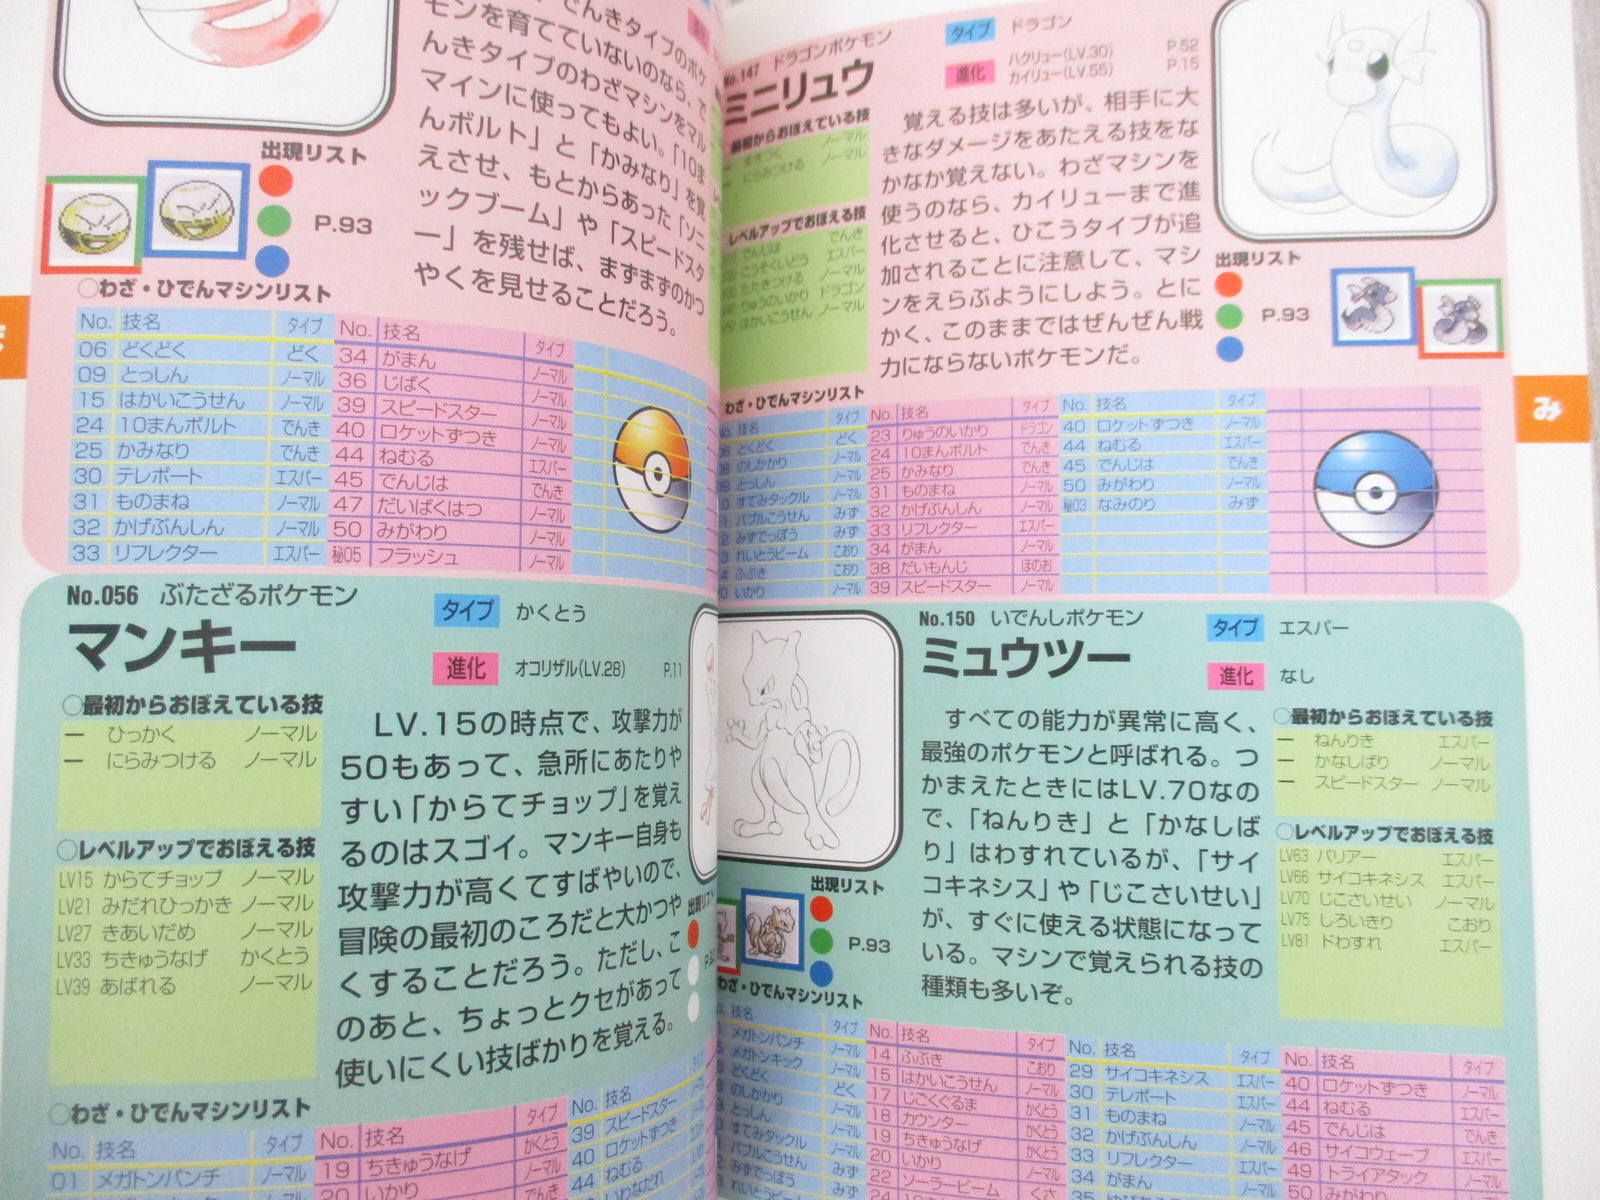 でんきタイプのポケ
モンを育てていないのなら、で
んきタイプのわざマシンをマル
マインに使ってもよい。「10ま
んボルト」と「かみなり」を覚
えさせ、もとからあった「ソニ
ックブーム」や「スピードスタ
ー」を残せば、まずまずのかつ
やくを見せることだろう。
出現リスト
P.93
○わざ・ひでんマシンリスト
No. 技名 タイプ
06 どくどく どく
09 とっしん ノーマル
15 はかいこうせん ノーマル
24 10まんボルト でんき
25 かみなり でんき
30 テレポート エスパー
31 ものまね ノーマル
32 かげぶんしん ノーマル
33 リフレクター エスパー
No. 技名 タイプ
34 がまん ノーマル
36 じばく ノーマル
39 スピードスター ノーマル
40 ロケットずつき ノーマル
44 ねむる エスパー
45 でんじは でんき
47 だいばくはつ ノーマル
50 みがわり ノーマル
秘05 フラッシュ ノーマル
No.056 ぶたざるポケモン
マンキー
タイプ かくとう
進化 オコリザル(LV.28) P.11
○最初からおぼえている技
ー ひっかく ノーマル
ー にらみつける ノーマル
○レベルアップでおぼえる技
LV15 からてチョップ ノーマル
LV21 みだれひっかき ノーマル
LV27 きあいだめ ノーマル
LV33 ちきゅうなげ かくとう
LV39 あばれる ノーマル
LV.15の時点で、攻撃力が
50もあって、急所にあたりや
すい「からてチョップ」を覚え
るのはスゴイ。マンキー自身も
攻撃力が高くてすばやいので、
冒険の最初のころだと大かつや
くすることだろう。ただし、こ
のあと、ちょっとクセがあって
使いにくい技ばかりを覚える。
出現リスト
○わざ・ひでんマシンリスト
No. 技名 タイプ
01 メガトンパンチ ノーマル
No. 技名 タイプ
19 ちきゅうなげ かくとう
20 いかり ノーマル
でんき
No. 技名
39 スピードスター
40 ロケットずつき
44 ねむる
いわなだれ
No.147 ドラゴンポケモン
ミニリュウ
タイプ ドラゴン
進化 ハクリュー(LV.30) P.52
カイリュー(LV.55) P.15
最初からおぼえている技
まきつく ノーマル
にらみつける ノーマル
レベルアップでおぼえる技
でんじは でんき
こうそくいどう エスパー
たたきつける ノーマル
りゅうのいかり ドラゴン
はかいこうせん ノーマル
覚える技は多いが、相手に大
きなダメージをあたえる技をな
かなか覚えない。わざマシンを
使うのなら、カイリューまで進
化させると、ひこうタイプが追
加されることに注意して、マシ
ンをえらぶようにしよう。とに
かく、このままではぜんぜん戦
力にならないポケモンだ。
出現リスト
P.93
わざ・ひでんマシンリスト
技名 タイプ
どくどく どく
のしかかり ノーマル
とっしん ノーマル
すてみタックル ノーマル
バブルこうせん みず
みずでっぽう みず
れいとうビーム こおり
ふぶき こおり
いかり ノーマル
No. 技名 タイプ
23 りゅうのいかり ドラゴン
24 10まんボルト でんき
25 かみなり でんき
31 ものまね ノーマル
32 かげぶんしん ノーマル
33 リフレクター エスパー
34 がまん ノーマル
38 だいもんじ ほのお
39 スピードスター ノーマル
No. 技名 タイプ
40 ロケットずつき ノーマル
44 ねむる エスパー
45 でんじは でんき
50 みがわり ノーマル
秘03 なみのり みず
み
No.150 いでんしポケモン
ミュウツー
タイプ エスパー
進化 なし
すべての能力が異常に高く、
最強のポケモンと呼ばれる。つ
かまえたときにはLV.70なの
で、「ねんりき」と「かなしば
り」はわすれているが、「サイ
コキネシス」や「じこさいせい」
が、すぐに使える状態になって
いる。マシンで覚えられる技の
種類も多いぞ。
○最初からおぼえている技
ー ねんりき エスパー
ー かなしばり ノーマル
ー スピードスター ノーマル
○レベルアップでおぼえる技
LV63 バリアー エスパー
LV66 サイコキネシス エスパー
LV70 じこさいせい ノーマル
LV75 しろいきり こおり
LV81 ドわすれ エスパー
出現リスト
P.93
わざ・ひでんマシンリスト
技名 タイプ
メガトンパンチ ノーマル
メガトンキック ノーマル
どくどく どく
のしかかり ノーマル
とっしん ノーマル
すてみタックル ノーマル
バブルこうせん みず
みずでっぽう みず
れいとうビーム こおり
No. 技名 タイプ
14 ふぶき こおり
15 はかいこうせん ノーマル
17 じごくぐるま かくとう
18 カウンター かくとう
19 ちきゅうなげ かくとう
20 いかり ノーマル
22 ソーラービーム くさ
No. 技名 タイプ
29 サイコキネシス エスパー
30 テレポート エスパー
31 ものまね ノーマル
32 かげぶんしん ノーマル
33 リフレクター エスパー
34 がまん ノーマル
No. 技名 タイプ
40 ロケットずつき ノーマル
44 ねむる エスパー
45 でんじは でんき
46 サイコウェーブ エスパー
49 トライアタック ノーマル
50 みがわり ノーマル